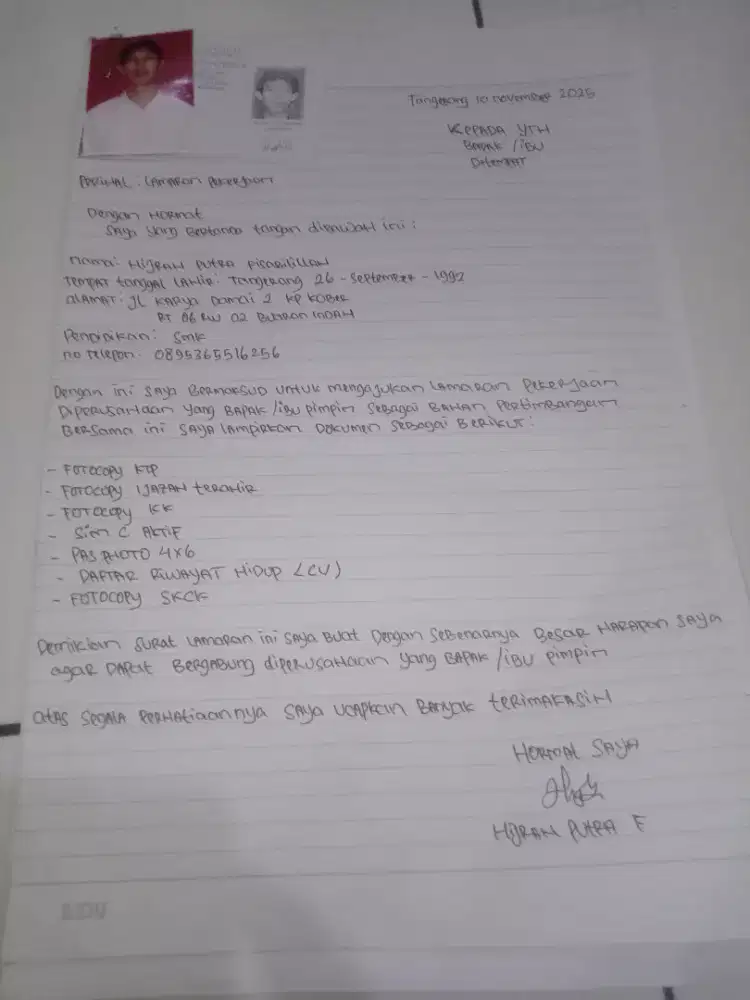 Tangerang 10 november 2025
KEPADA YTH
BAPAK / IBU
DITEMPAT
PERIHAL : LAMARAN PEKERJAAN
Dengan HORMAT
SAYA YANG BERTANDA tangan DIBAWAH ini :
nama: HIJRAH PUTRA
TEMPAT tanggal LAHIR: Tangerang 26 - September - 1992
ALAMAT: JL KARYA DAMAI 2 KP KOBER
RT 06 RW 02 BUARAN INDAH
PENDIDIKAN: SMK
no TELEPON: 0895365516256
Dengan ini SAYA BERMAKSUD UNTUK mengajukan LAMARAN PEKERJAAN
DIPERUSAHAAN yang BAPAK /IBU pimpin SEBAGAI BAHAN PERTIMBANGAN
BERSAMA ini SAYA LAMPIRKAN DOKUMEN SEBAGAI BERIKUT:
- FOTOCOPY KTP
- FOTOCOPY IJAZAH terAHIR
- FOTOCOPY KK
- SIM C AKTIF
- PAS PHOTO 4X6
- DAFTAR RIWAYAT HIDUP (CV)
- FOTOCOPY SKCK
Demikian SURAT LAMARAN ini SAYA BUAT Dengan SEBENARNYA BESAR HARAPAN SAYA
agar DAPAT BERGABUNG diPERUSAHAAN yang BAPAK /IBU pimpin
atas SEGALA PERHATIAANNYA SAYA UCAPKAN BANYAK TERIMAKASIH
HORMAT SAYA
HIJRAH PUTRA F